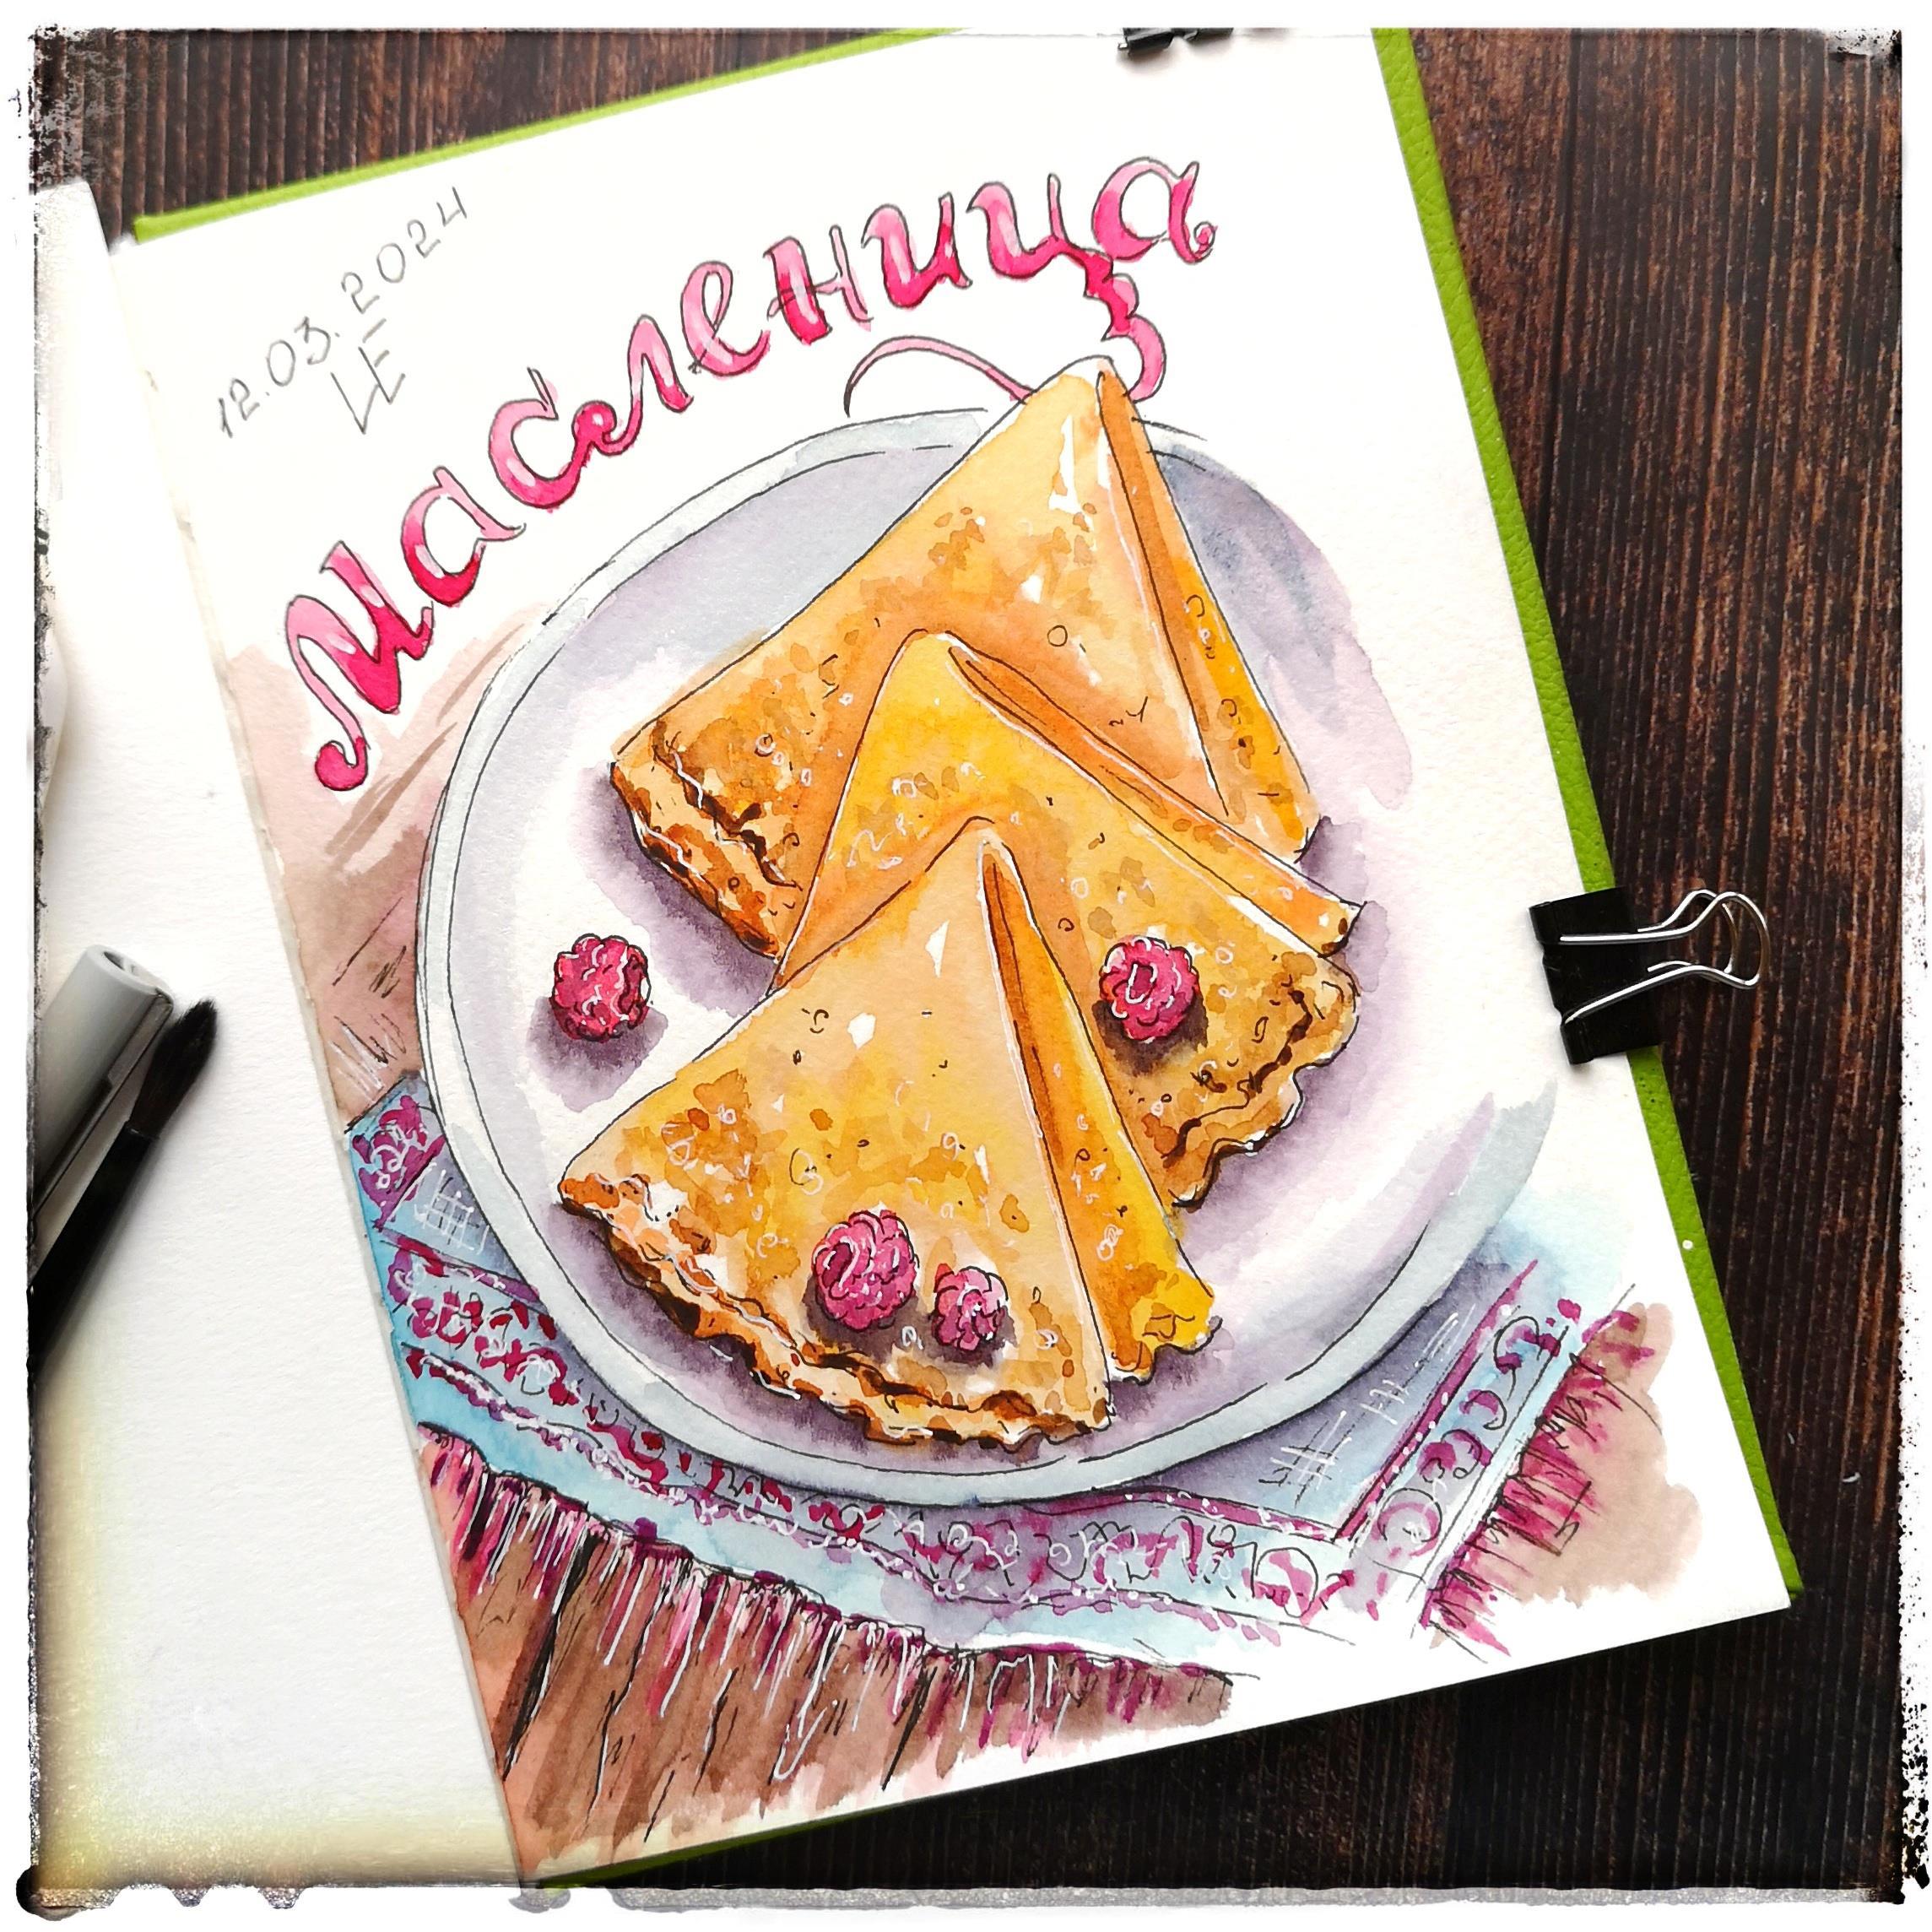 12.03.2024
LE
Масленица